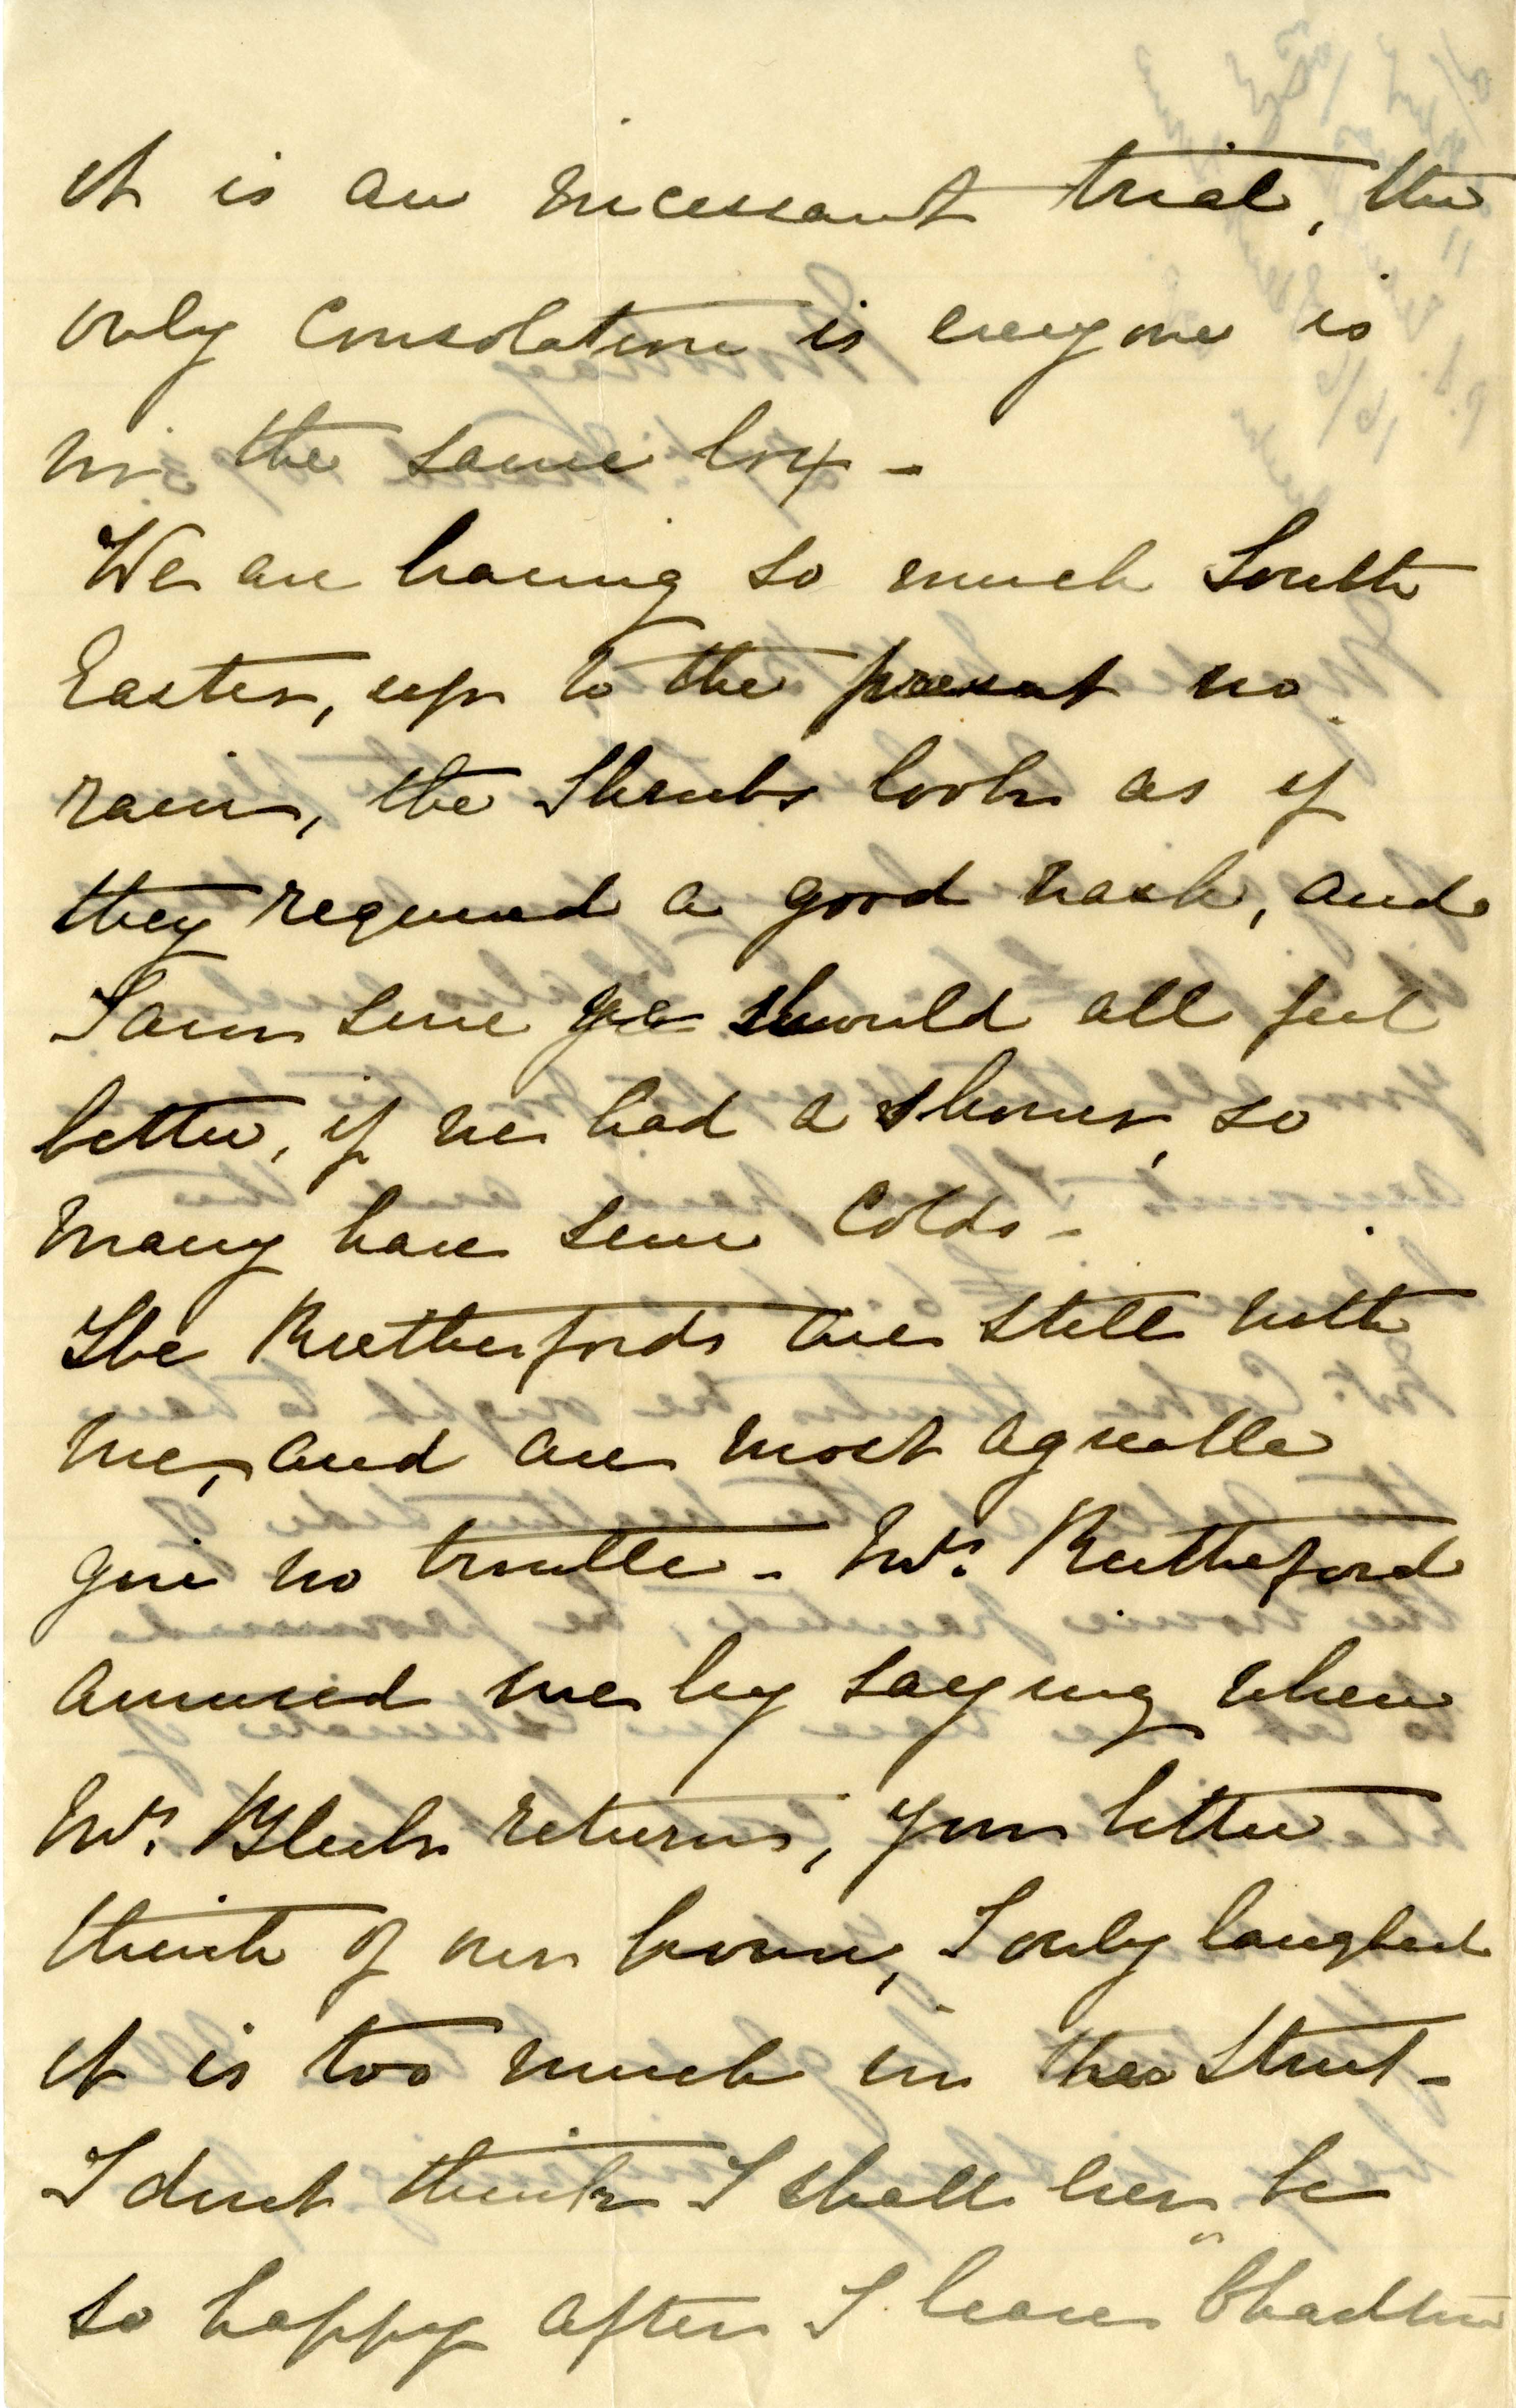 it is an incessant trial, the
only consolation is everyone is
in the same box -
We are having so much South
Easter, up to the present no
rain, the Shrubs look as if
they required a good wash, and
I am sure we should all feel
better, if we had a shower, so
many have severe Colds -
The Rutherfords are still with
me, and are most agreeable
give no trouble - Mrs. Rutherford
amused me by saying when
Mrs. Bleek returns, you better
think of our house, I only laughed
it is too much in the Street -
I dont think I shall ever be
so happy after I leave "Charlton